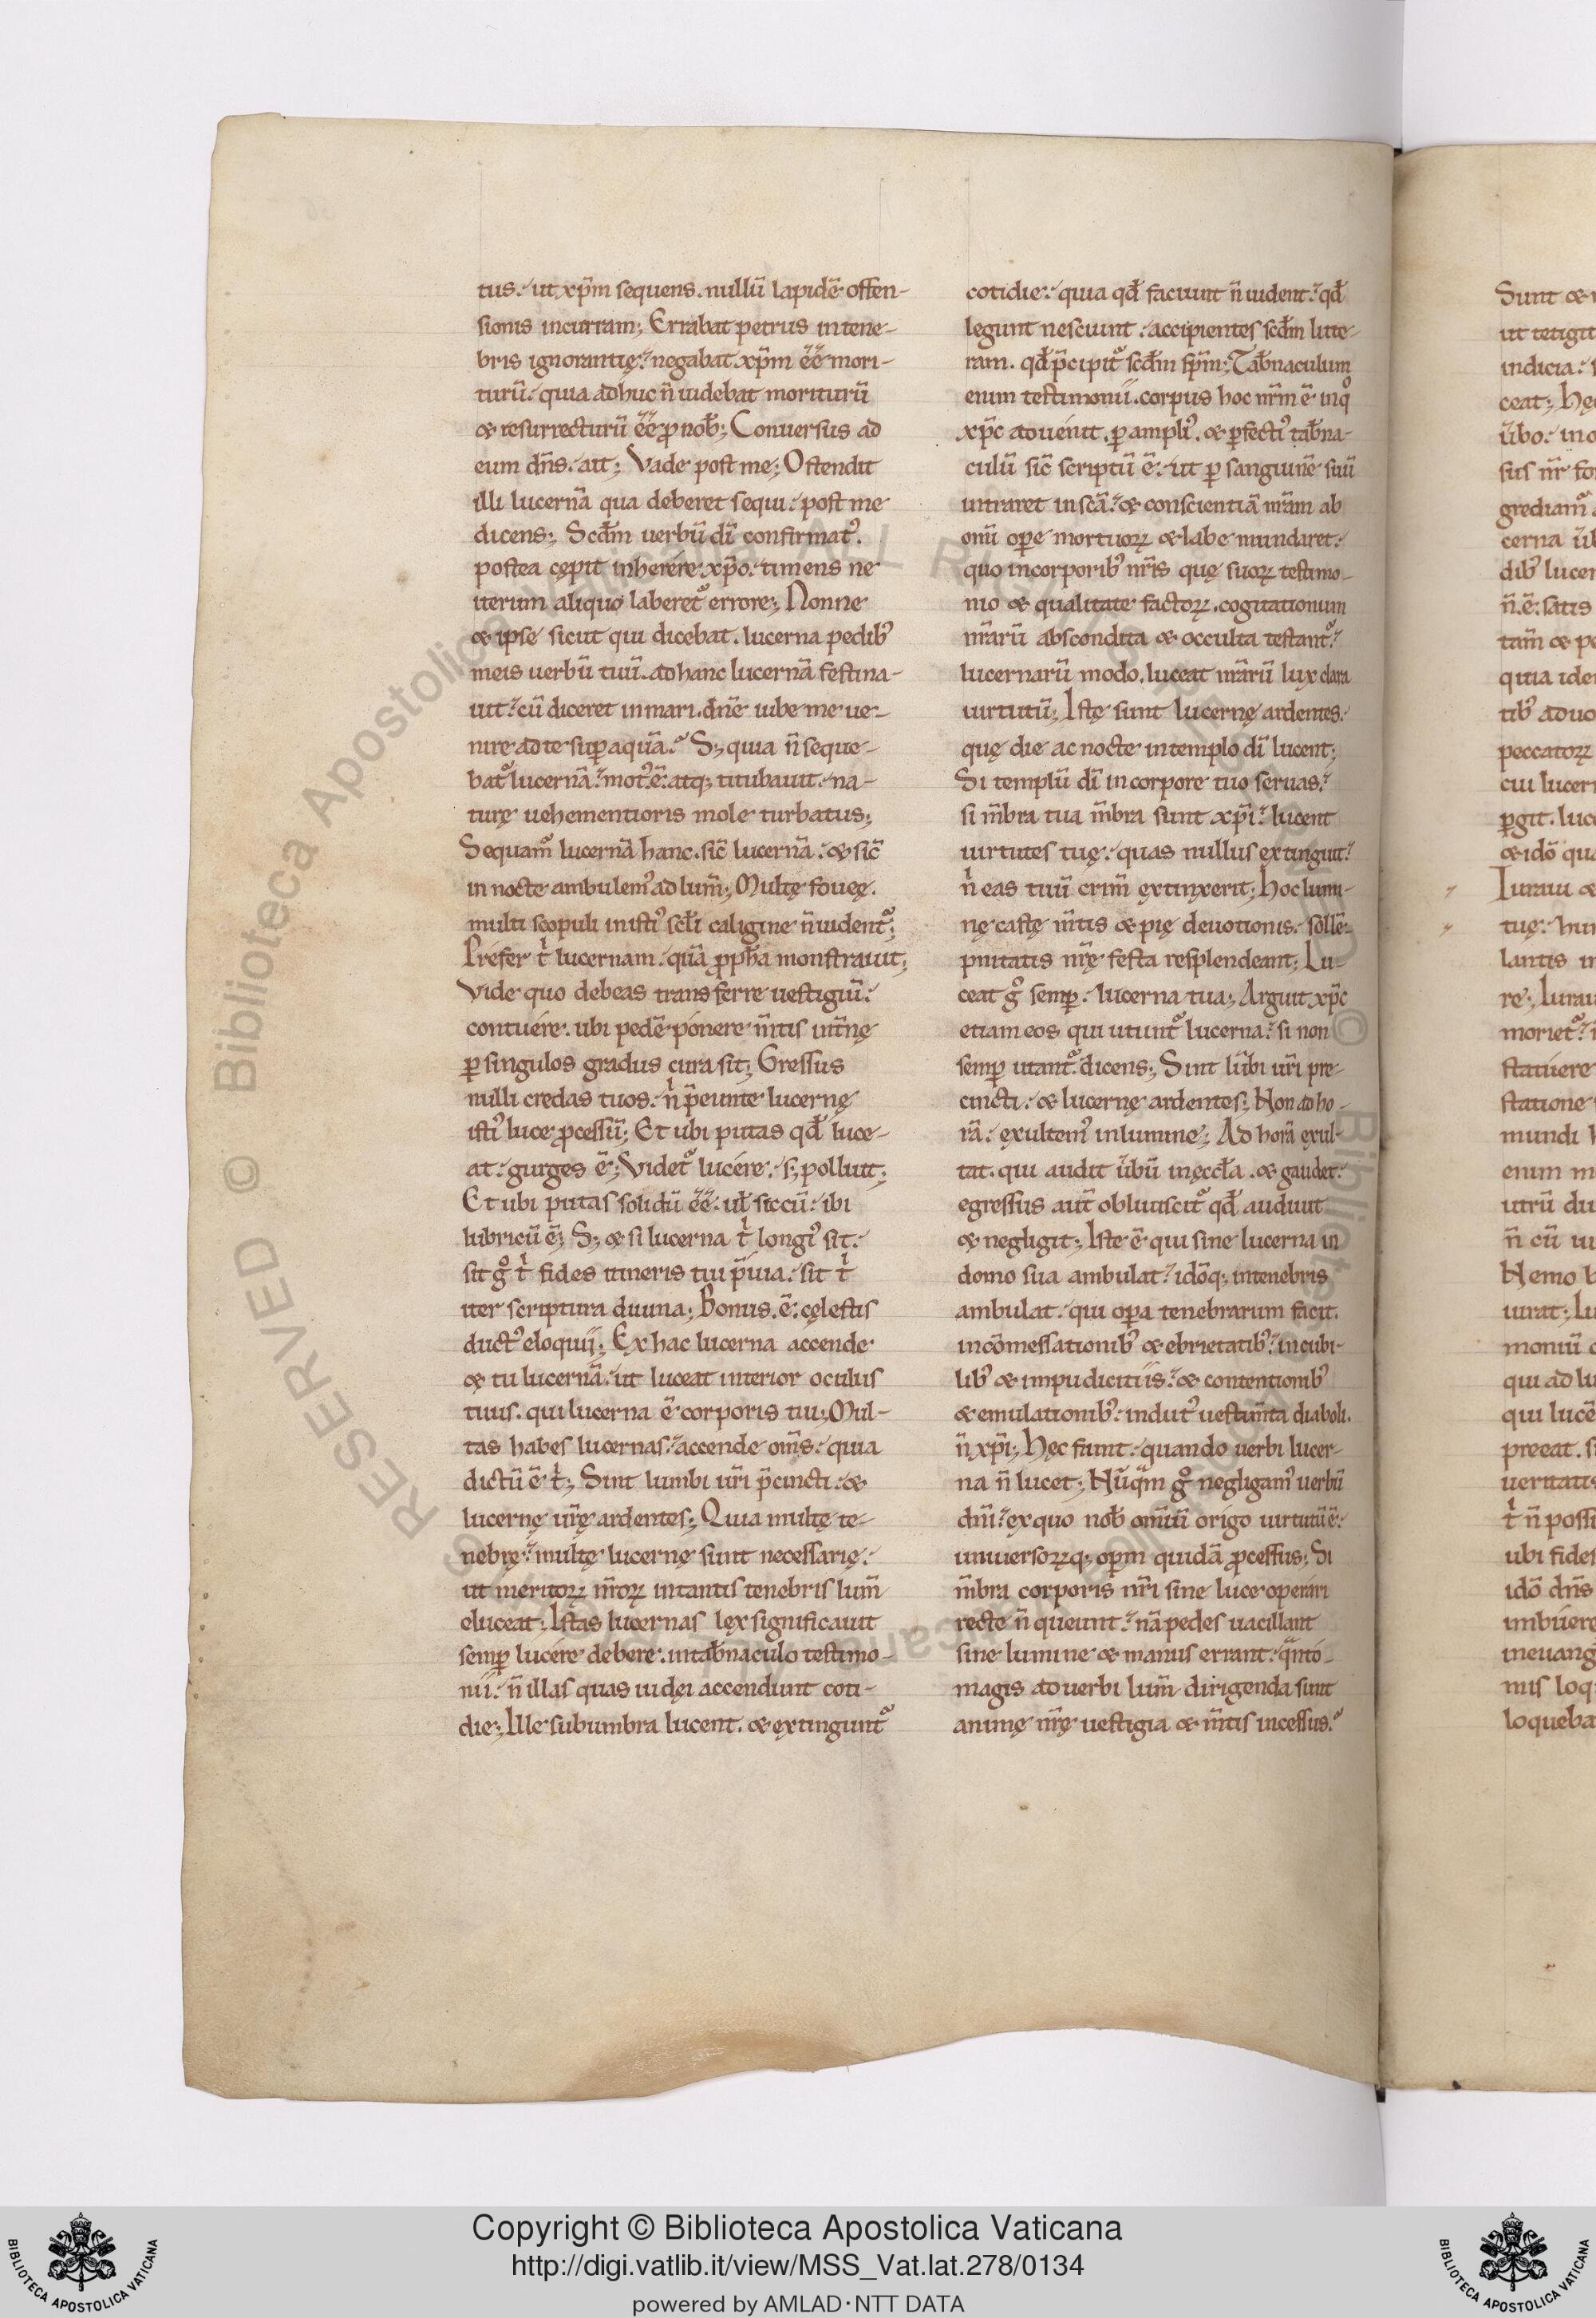 tus. ut xp̄m sequens. nullū lapidē offen-
sionis incurram; Errabat petrus in tene-
bris ignorantię. negabat xp̄m ēē mori-
turū. quia adhuc n̄ uidebat moriturū
& resurrecturū ēē ꝓ nob̄; Conuersus ad
eum dn̄s. ait; Vade post me; Ostendit
illi lucernā qua deberet sequi. post me
dicens; Scd̄m uerbū dī confirmatꝰ.
postea cępit inherére xp̄o. timens ne
iterum aliquo laberet᷑ errore; Nonne
& ipse sicut qui dicebat. lucerna pedibꝰ
meis uerbū tuū. ad hanc lucernā festina-
uit. cū diceret in mari. dn̄e iube me ue-
nire ad te suꝑ aquā. S; quia n̄ seque-
bat᷑ lucernā. motꝰ ē. atq; titubauit. na-
turę uehementioris mole turbatus;
Sequam᷑ lucernā hanc. sic̄ lucernā. & sic̄
in nocte ambulemꝰ ad lum̄; Multę foueę.
multi scopuli in istiꝰ scl̄i caligine n̄ uident᷑;
Préfer t̍ lucernam. quā ꝓph̄a monstrauit;
Vide quo debeas transferre uestigiū.
contuére. ubi pedē pónere m̄tis int̄nę
ꝑ singulos gradus cura sit; Gressus
nulli credas tuos. n̍ p̄eunte lucernę
istiꝰ luce ꝓcessū; Et ubi putas qd̄ luce-
at. gurges ē; Videt᷑ lucére. s; polluit;
Et ubi putas solidū ēē. ul̄ siccū. ibi
lubricū ē; S; & si lucerna t̍ longiꝰ sit.
sit gͦ t̍ fides itineris tui p̄uia. sit t̍
iter scriptura diuina; Bonus. ē. cęlestis
ductꝰ eloquij; Ex hac lucerna accende
& tu lucernā. ut luceat interior oculus
tuus. qui lucerna ē corporis tui; Mul-
tas habes lucernas. accende om̄s. quia
dictū ē t̍; Sint lumbi ur̄i p̄cincti. &
lucernę ur̄ę ardentes; Quia multę te-
nebrę. multę lucernę sunt necessarię.
ut meritoꝝ nr̄oꝝ in tantis tenebris lum̄
eluceat; Istas lucernas lex significauit
semꝑ lucére debere. in tab̄naculo testimo-
nii. n̄ illas quas iudęi accendunt coti-
die; Ille sub umbra lucent. & extingunt᷑
cotidie. quia qd̄ faciunt n̄ uident. qd̄
legunt nesciunt. accipientes scd̄m litte-
ram. qd̄ p̄cipit᷑ scd̄m sp̄m; Tab̄naculum
enim testimonii. corpus hoc nr̄m ē inqͦ
xp̄c aduénit. ꝑ ampliꝰ. & ꝑfectiꝰ tab̄na-
culū sic̄ scriptū ē. ut ꝑ sanguinē suū
intraret in scā. & conscientiā nr̄am ab
om̄i oꝑe mortuoꝝ & labe mundaret.
quo in corporibꝰ nr̄is quę suoꝝ testimo-
nio & qualitate factoꝝ. cogitationum
nr̄arū abscondita & occulta testant᷑.
lucernarū modo. luceat nr̄arū lux clara
uirtutū; Istę sunt lucernę ardentes.
quę die ac nocte in templo dī lucent;
Si templū dī in corpore tuo seruas.
si m̄bra tua m̄bra sunt xp̄i. lucent
uirtutes tuę. quas nullus extinguit.
n̍ eas tuū crim̄ extinxerit; Hoc lumi-
nę castę m̄tis & pię deuotionis. sollē-
pnitatis nr̄ę festa resplendeant; Lu-
ceat gͦ semꝑ. lucerna tua; Arguit xp̄c
etiam eos qui utunt᷑ lucerna. si non
semꝑ utant᷑. dicens; Sint lūbi ur̄i pre-
cincti. & lucernę ardentes; Non ad ho-
rā. exultemꝰ in lumine; Ad horā exul-
tat. qui audit ūbū in eccl̄a. & gaudet.
egressus aut̄ obliuiscit᷑ qd̄ audiuit
& negligit; Iste ē qui sine lucerna in
domo sua ambulat. idōq; in tenebris
ambulat. qui oꝑa tenebrarum facit.
in cōmessationibꝰ & ebrietatibꝰ. in cubi-
libꝰ & impudicitiis. & contentionibꝰ
& emulationibꝰ. indutꝰ uestim̄ta diaboli.
n̄ xp̄i; Hęc fiunt. quando uerbi lucer-
na n̄ lucet; Nūqᷓm gͦ negligamꝰ uerbū
dn̄i. ex quo nob̄ om̄iū origo uirtutū ē.
uniuersoꝝq; oꝑm quidā ꝓcessus; Si
m̄bra corporis nr̄i sine luce operári
recte n̄ queunt. nā pedes uacillant
sine lumine & manus errant. qᷓnto-
magis ad uerbi lum̄ dirigenda sunt
animę nr̄ę uestigia & m̄tis incessus.
Copyright © Biblioteca Apostolica Vaticana
http://digi.vatlib.it/view/MSS_Vat.lat.278/0134
powered by AMLAD·NTT DATA